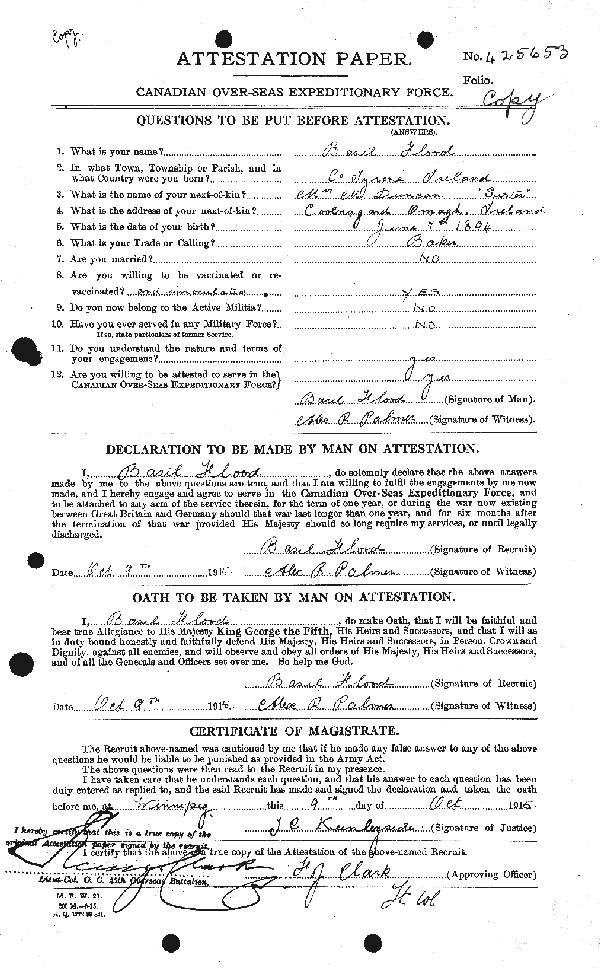 Copy.
ATTESTATION PAPER.
No. 425653
Folio.
CANADIAN OVER-SEAS EXPEDITIONARY FORCE.
Copy
QUESTIONS TO BE PUT BEFORE ATTESTATION.
(ANSWERS).
1. What is your name? Basil Flood
2. In what Town, Township or Parish, and in
what Country were you born? Co Tyrone Ireland
3. What is the name of your next-of-kin? Duncan "Sister"
4. What is the address of your next-of-kin? Omagh, Ireland
5. What is the date of your birth? June 7th 1894
6. What is your Trade or Calling? Baker
7. Are you married? NO
8. Are you willing to be vaccinated or re-
vaccinated? and inoculated YES
9. Do you now belong to the Active Militia? NO
10. Have you ever served in any Military Force? NO
If so, state particulars of former Service.
11. Do you understand the nature and terms of
your engagement? yes
12. Are you willing to be attested to serve in the
CANADIAN OVER-SEAS EXPEDITIONARY FORCE? yes
Basil Flood (Signature of Man).
Alex R Palmer (Signature of Witness).
DECLARATION TO BE MADE BY MAN ON ATTESTATION.
I, Basil Flood, do solemnly declare that the above answers
made by me to the above questions are true, and that I am willing to fulfil the engagements by me now
made, and I hereby engage and agree to serve in the Canadian Over-Seas Expeditionary Force, and
to be attached to any arm of the service therein, for the term of one year, or during the war now existing
between Great Britain and Germany should that war last longer than one year, and for six months after
the termination of that war provided His Majesty should so long require my services, or until legally
discharged.
Basil Flood (Signature of Recruit)
Date Oct 9th 1915 Alex R Palmer (Signature of Witness)
OATH TO BE TAKEN BY MAN ON ATTESTATION.
I, Basil Flood, do make Oath, that I will be faithful and
bear true Allegiance to His Majesty King George the Fifth, His Heirs and Successors, and that I will as
in duty bound honestly and faithfully defend His Majesty, His Heirs and Successors, in Person, Crown and
Dignity, against all enemies, and will observe and obey all orders of His Majesty, His Heirs and Successors,
and of all the Generals and Officers set over me. So help me God.
Basil Flood (Signature of Recruit)
Date Oct 9th 1915 Alex R Palmer (Signature of Witness)
CERTIFICATE OF MAGISTRATE.
The Recruit above-named was cautioned by me that if he made any false answer to any of the above
questions he would be liable to be punished as provided in the Army Act.
The above questions were then read to the Recruit in my presence.
I have taken care that he understands each question, and that his answer to each question has been
duly entered as replied to, and the said Recruit has made and signed the declaration and taken the oath
before me, at Winnipeg this 9th day of Oct 1915
I hereby certify that this is a true copy of the (Signature of Justice)
original Attestation paper signed by the recruit.
I certify that the above is a true copy of the Attestation of the above-named Recruit.
Clark (Approving Officer)
Lieut-Col. O. C. 45th Overseas Battalion.
Lt Col
M. F. W. 23.